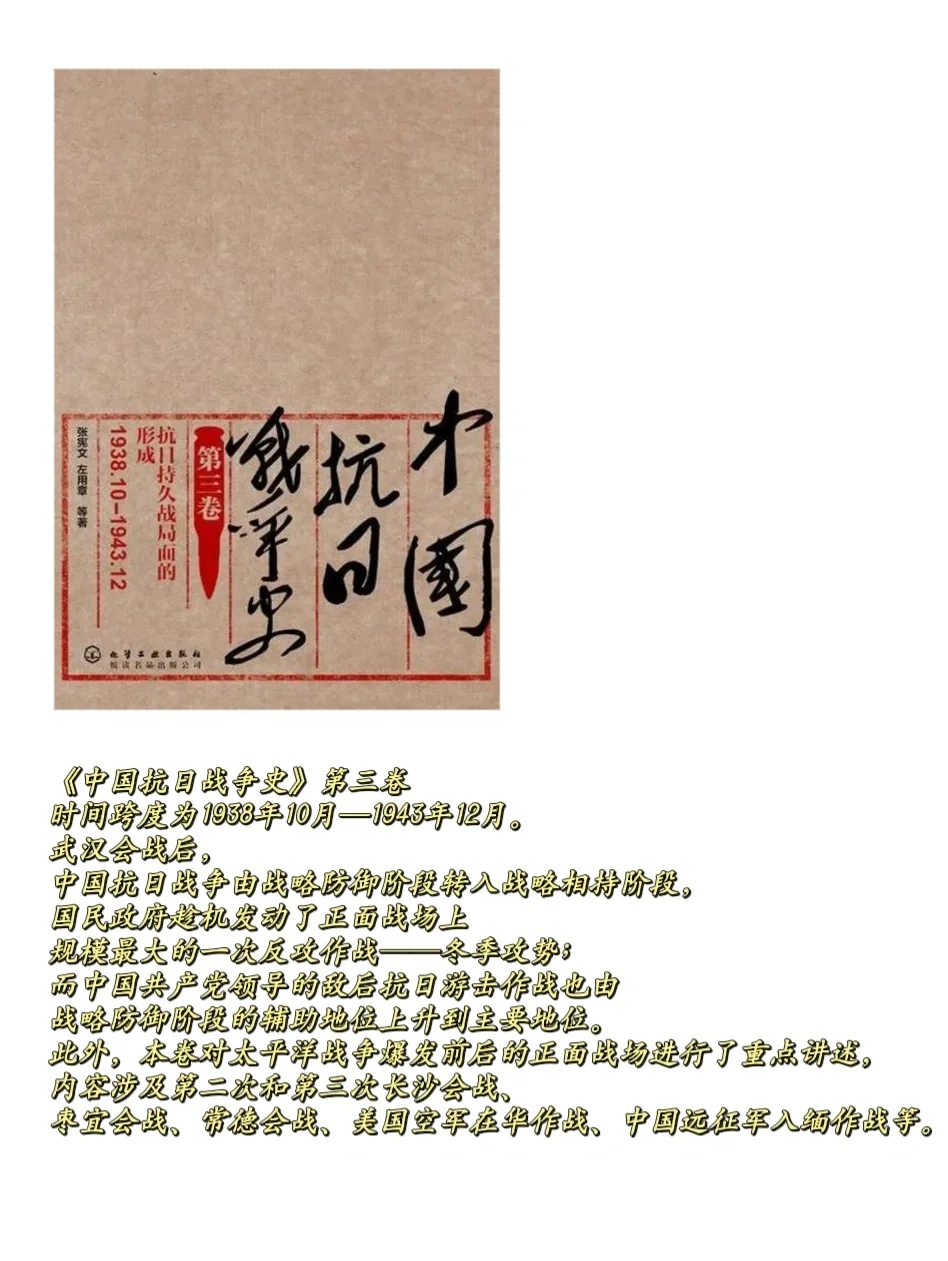 中国
抗日
戰爭史
第三卷
抗日持久战局面的
形成
1938.10-1943.12
张宪文 左用章 等著
化学工业出版社
悦读名品出版公司
《中国抗日战争史》第三卷
时间跨度为1938年10月—1943年12月。
武汉会战后，
中国抗日战争由战略防御阶段转入战略相持阶段，
国民政府趁机发动了正面战场上
规模最大的一次反攻作战——冬季攻势；
而中国共产党领导的敌后抗日游击作战也由
战略防御阶段的辅助地位上升到主要地位。
此外，本卷对太平洋战争爆发前后的正面战场进行了重点讲述，
内容涉及第二次和第三次长沙会战、
枣宜会战、常德会战、美国空军在华作战、中国远征军入缅作战等。